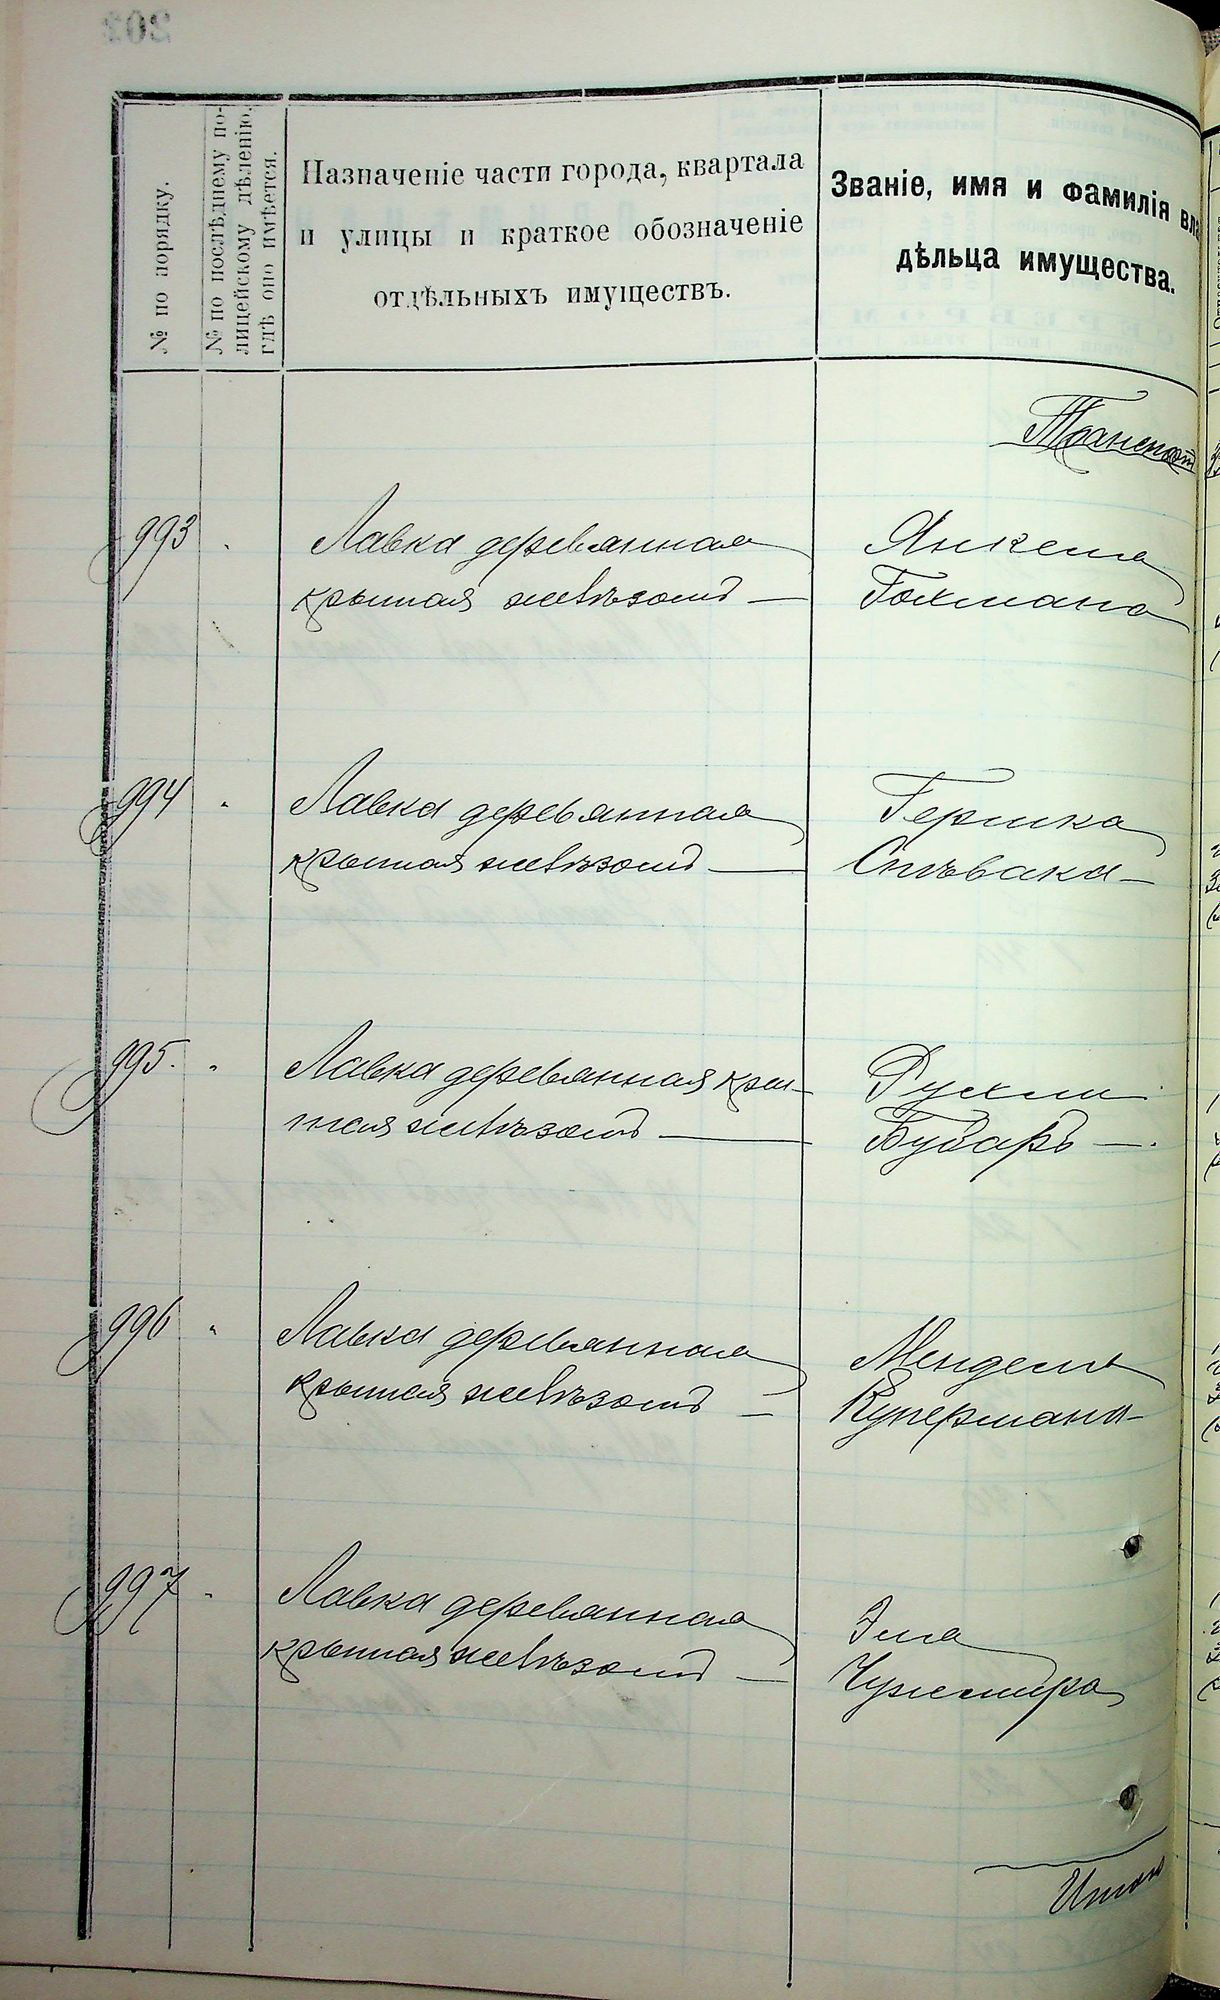 № по порядку.
№ по послѣднему по-
лицейскому дѣленію,
гдѣ оно имѣется.
Назначеніе части города, квартала
и улицы и краткое обозначеніе
отдѣльныхъ имуществъ.
Званіе, имя и фамилія вла
дѣльца имущества.
Транспорт
993 Лавка деревянная Янкеля
крытая желѣзомъ — Гохмана
994 Лавка деревянная Гершка
крытая желѣзомъ — Спѣвака —
995. Лавка деревянная кры-
тая желѣзомъ — Бубаръ —
996 Лавка деревянная Менделя
крытая желѣзомъ — Купермана —
997 Лавка деревянная Эля
крытая желѣзомъ —
Итого